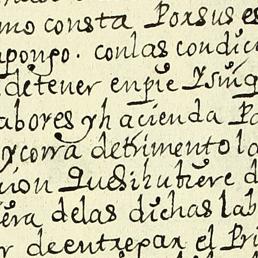 mo consta Por sus es
mpongo. con las condic
detener en pie Y sin q
labores y hacienda Pa
y corra detrimento la
cion Que si hubiere d
era de las dichas lab
r de entregar el Pri